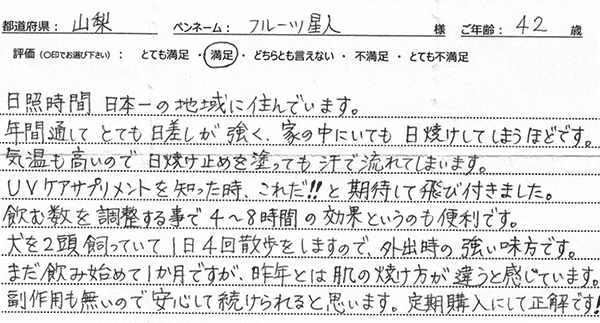 都道府県： 山梨 ペンネーム： フルーツ星人 様 ご年齢： 42 歳
評価（○印でお選び下さい）： とても満足 ・ 満足 ・ どちらとも言えない ・ 不満足 ・ とても不満足
日照時間 日本一の地域に住んでいます。
年間通して とても 日差しが 強く、家の中にいても 日焼けしてしまうほどです。
気温も高いので 日焼け止めを塗っても 汗で流れてしまいます。
UVケアサプリメントを知った時、これだ!!と期待して飛び付きました。
飲む数を調整する事で4〜8時間の効果というのも便利です。
犬を2頭飼っていて1日4回散歩をしますので、外出時の強い味方です。
まだ飲み始めて1か月ですが、昨年とは肌の焼け方が違うと感じています。
副作用も無いので安心して続けられると思います。定期購入にして正解です!